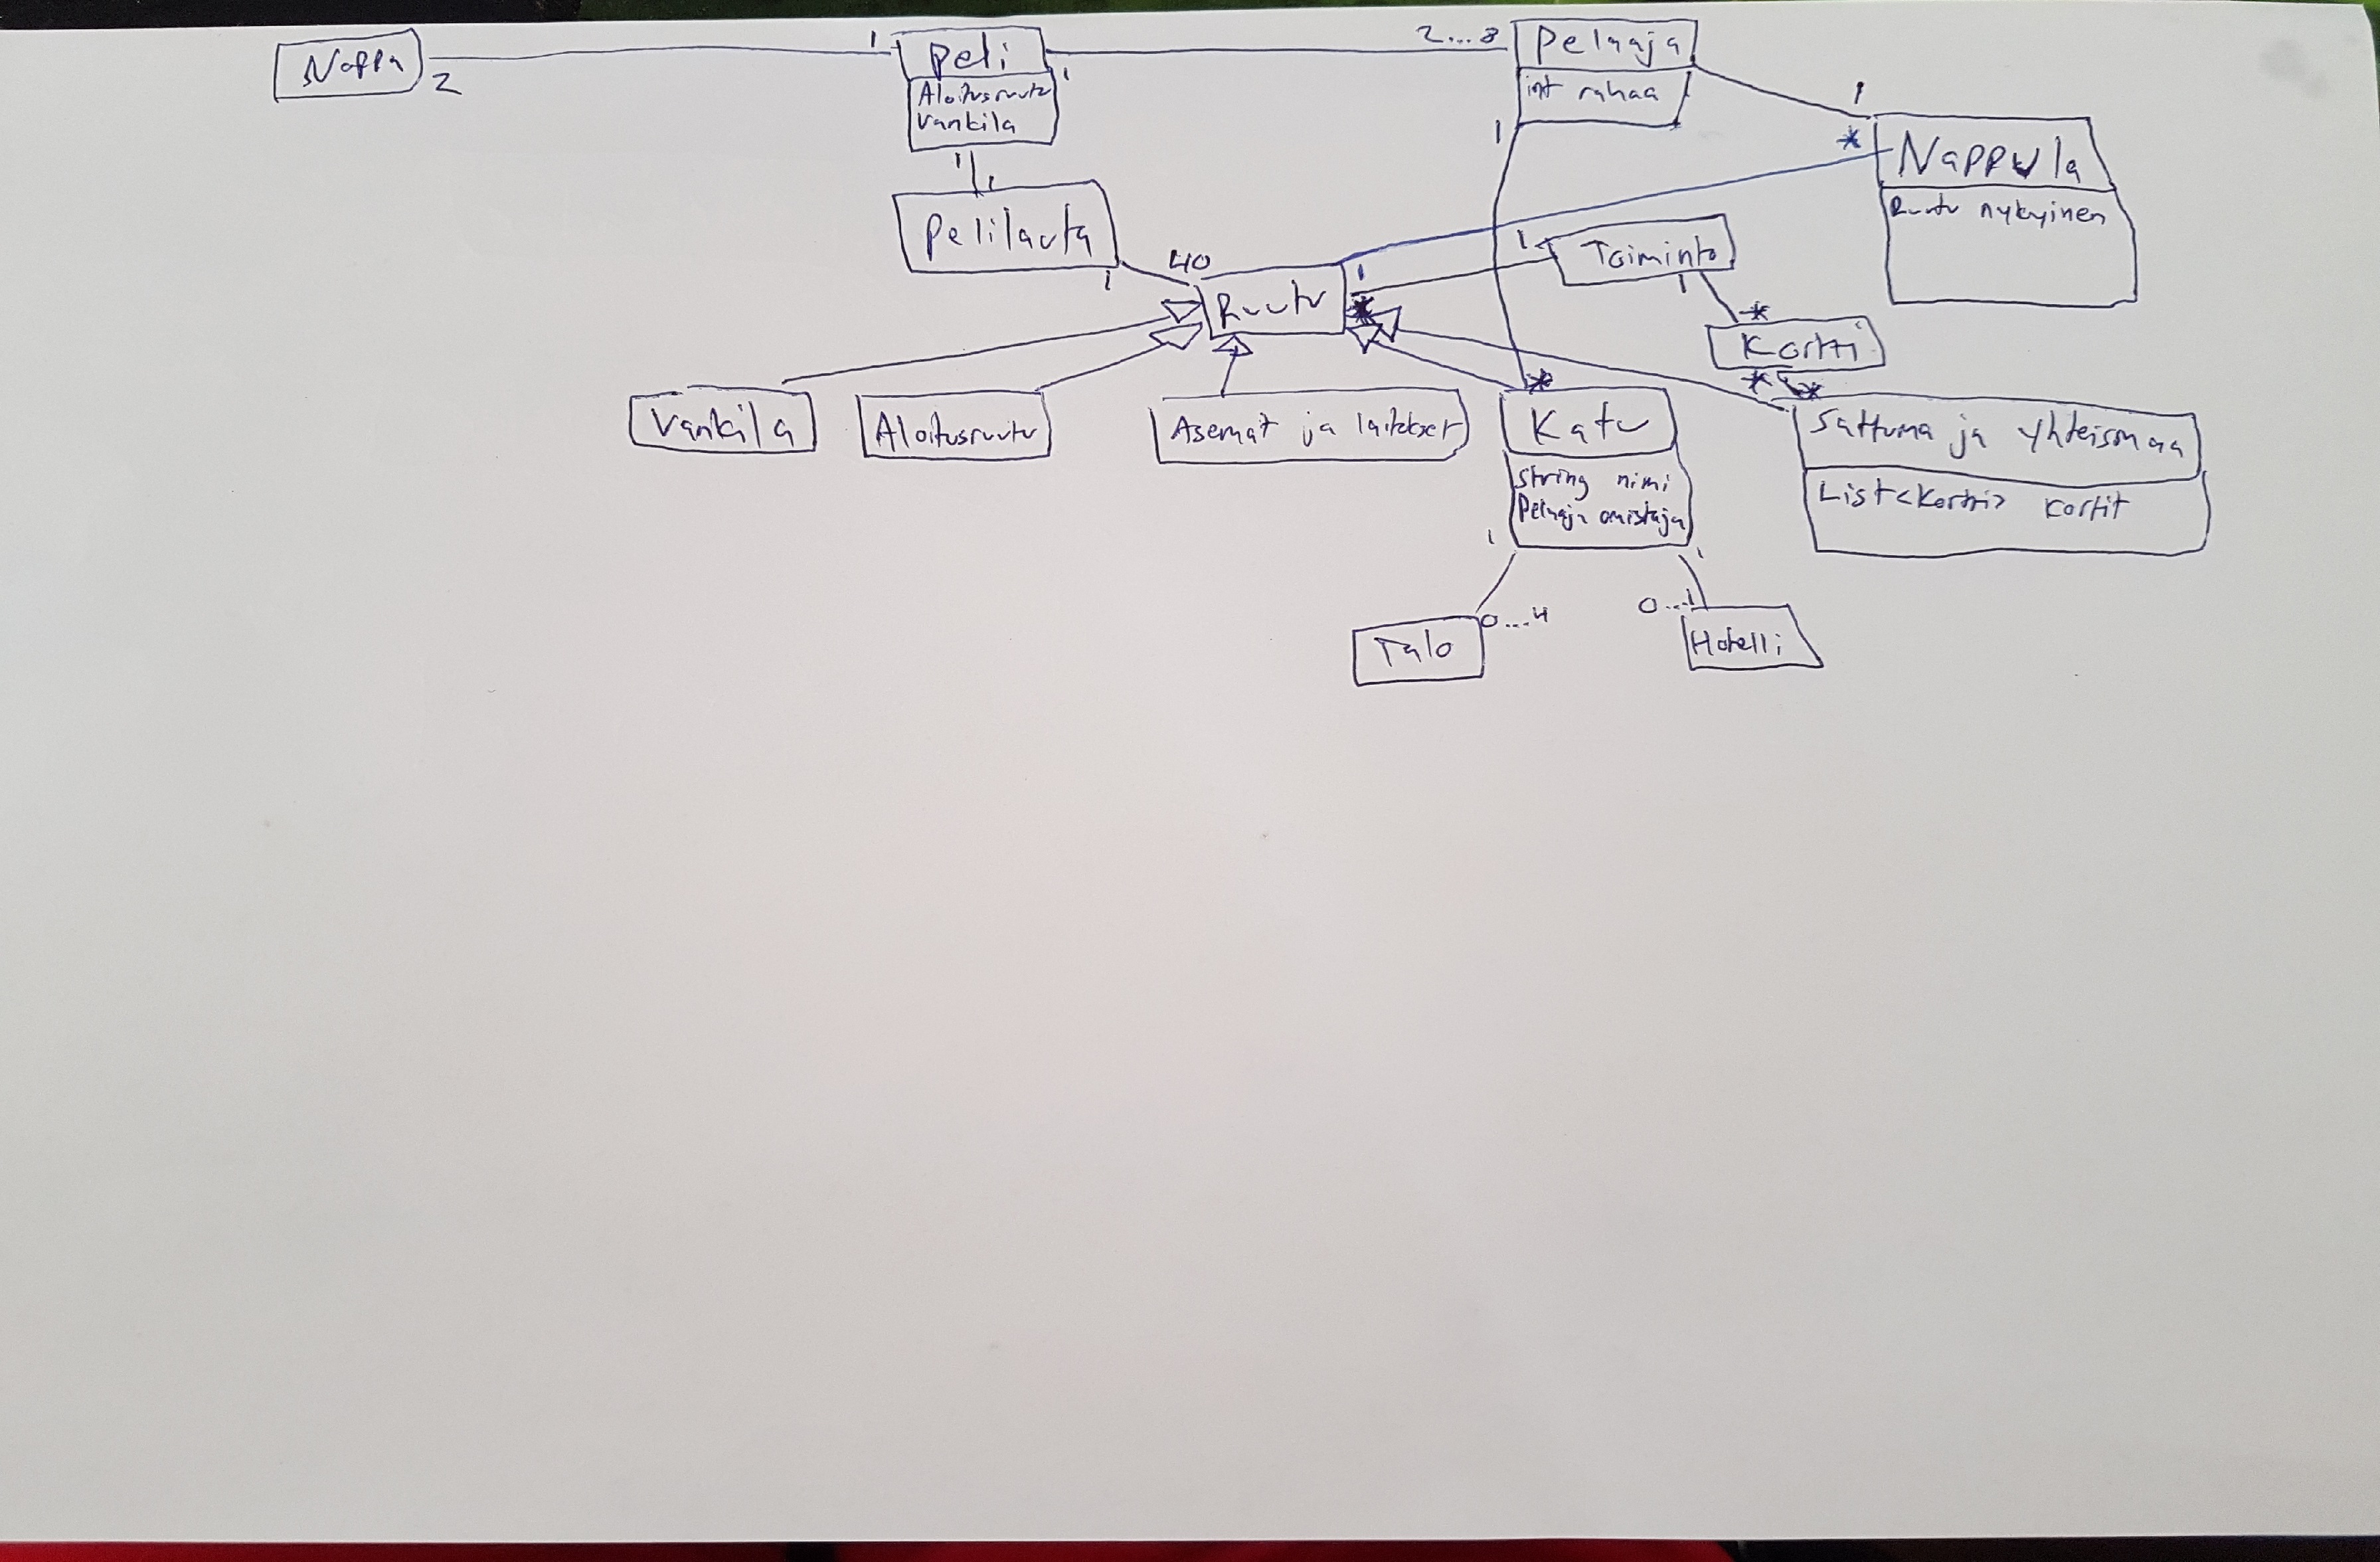 Noppa
2
1
Peli
1
Aloitusruutu
Vankila
2...8
Pelaaja
int rahaa
1
1
*
Nappula
Ruutu nykyinen
1
1
Pelilauta
1
40
Ruutu
1
*
1
Toiminto
1
*
Kortti
*
*
Vankila
Aloitusruutu
Asemat ja laitokset
*
Katu
String nimi
Pelaaja omistaja
1
1
Sattuma ja yhteismaa
List<Kortti> kortit
0...4
Talo
0...1
Hotelli